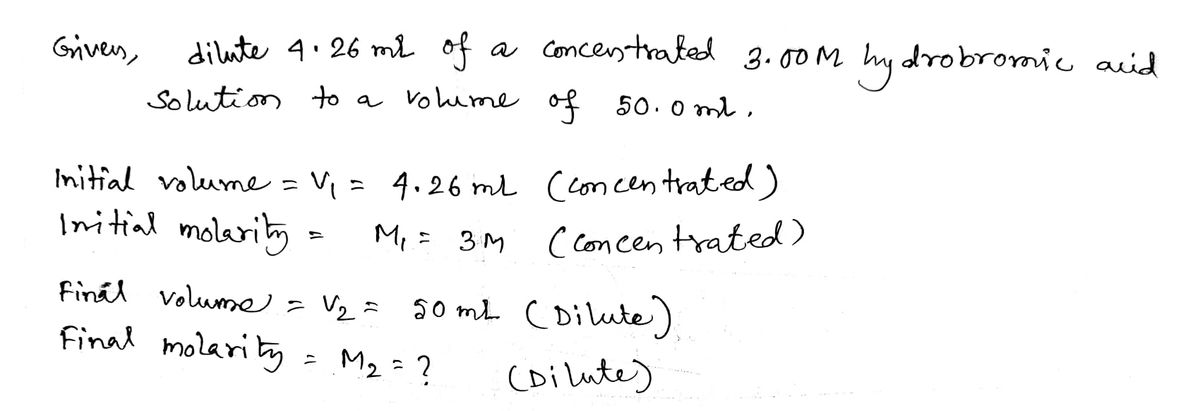 Given, dilute 4.26 ml of a concentrated 3.00 M hydrobromic acid
solution to a volume of 50.0 ml.
Initial volume = V₁ = 4.26 mL (concentrated)
Initial molarity = M₁ = 3M (concentrated)
Final volume = V₂ = 50 mL (Dilute)
Final molarity = M₂ = ? (Dilute)